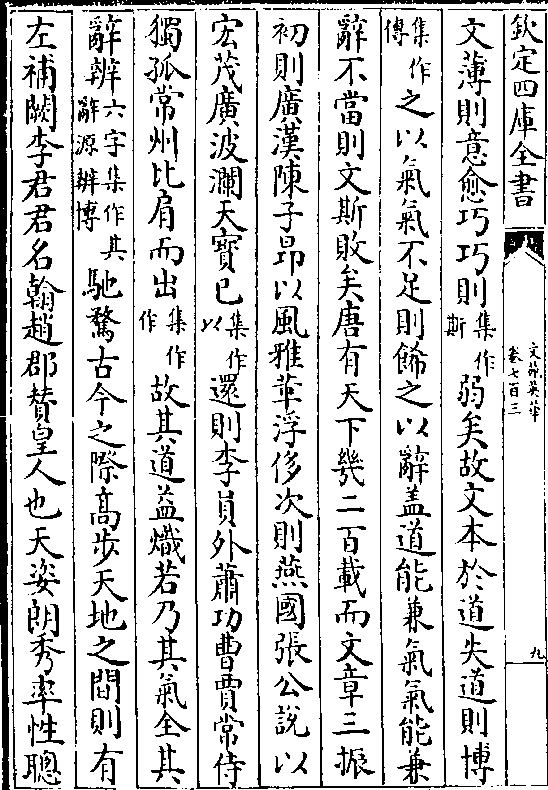 欽定四庫全書
文苑英華
卷七百三
九
文薄則意愈巧巧則集作斯弱矣故文本於道失道則博
集作傅之以氣氣不足則飾之以辭盖道能兼氣氣能兼
辭不當則文斯敗矣唐有天下幾二百載而文章三振
初則廣漢陳子昻以風雅革浮侈次則燕國張公說以
宏茂廣波瀾天寳已集作以還則李員外蕭功曹賈常侍
獨孤常州比肩而出集作作故其道益熾若乃其氣全其
辭辨六字集作其辭源辨博馳騖古今之際高步天地之間則有
左補闕李君君名翰趙郡賛皇人也天姿朗秀率性聰